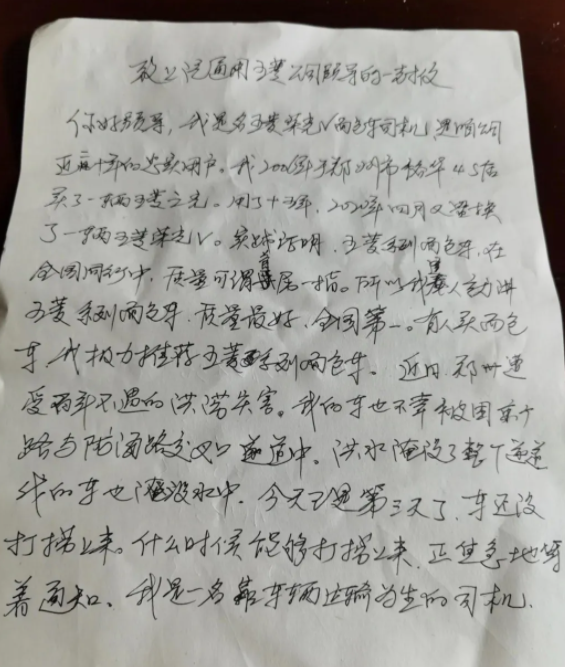 致上汽通用五菱公司领导的一封信
你好领导，我是名五菱荣光V面包车司机，是贵公司
近二十年的忠实用户。我2006年于郑州市裕华4S店
买了一辆五菱之光。用了十五年，2020年四月又替换
了一辆五菱荣光V。实践证明，五菱系列面包车，在
全国同行中，质量可谓首屈一指。所以我逢人言讲
五菱系列面包车，质量最好，全国第一。有人买面包
车，我极力推荐五菱系列面包车。近日，郑州遭
受百年不遇的洪涝灾害。我的车也不幸被困京广
路与陇海路交叉口隧道中，洪水淹没了整个隧道
我的车也淹没水中，今天已是第三天了，车还没
打捞上来。什么时候能够打捞上来，正焦急地等
着通知。我是一名靠车辆运输为生的司机.